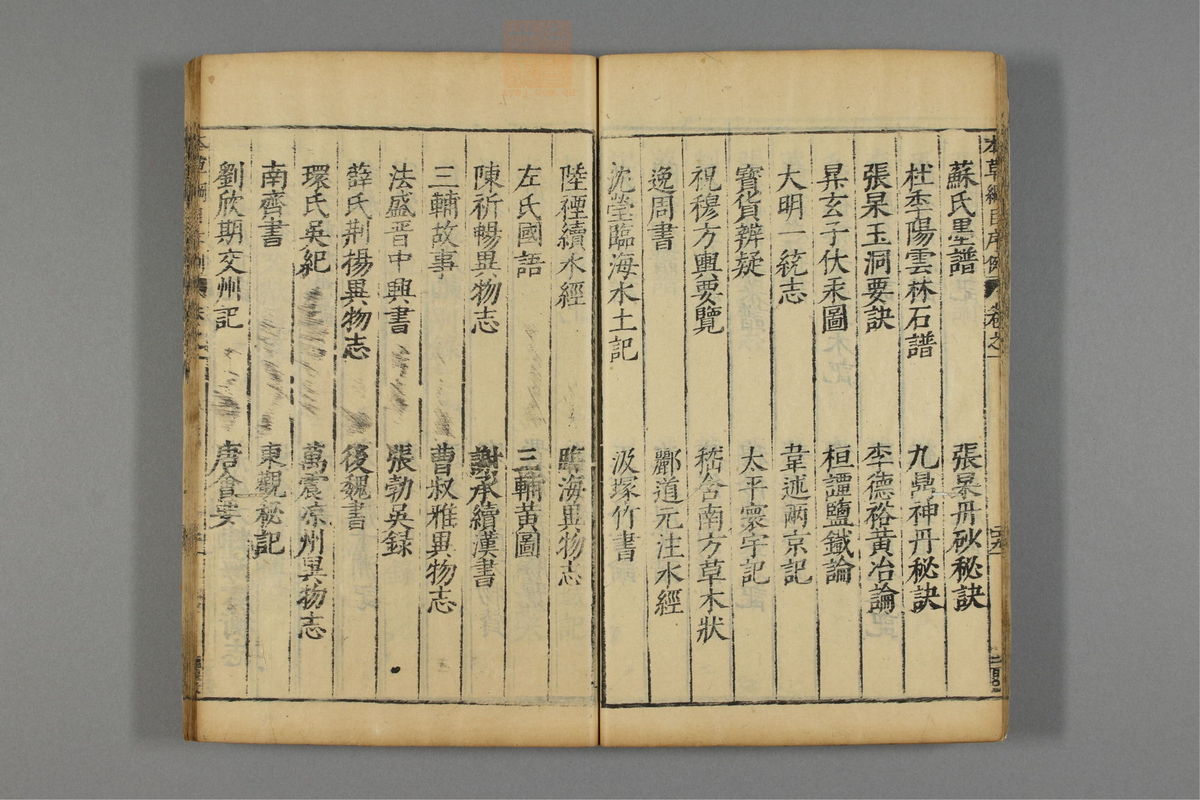 本草綱目序例 卷之一
蘇氏墨譜 張杲丹砂秘訣
杜季陽雲林石譜 九鼎神丹秘訣
張杲玉洞要訣 李德裕黃冶論
昇玄子伏汞圖 桓譚鹽鐵論
大明一統志 韋述兩京記
寶貨辨疑 太平寰宇記
祝穆方輿要覽 嵇含南方草木狀
逸周書 酈道元注水經
沈瑩臨海水土記 汲塚竹書
陸禋續水經 臨海異物志
左氏國語 三輔黃圖
陳祈暢異物志 謝承續漢書
三輔故事 曹叔雅異物志
法盛晋中興書 張勃吳録
薛氏荆楊異物志 後魏書
環氏吳紀 萬震凉州異物志
南齊書 東觀秘記
劉欣期交州記 唐會要